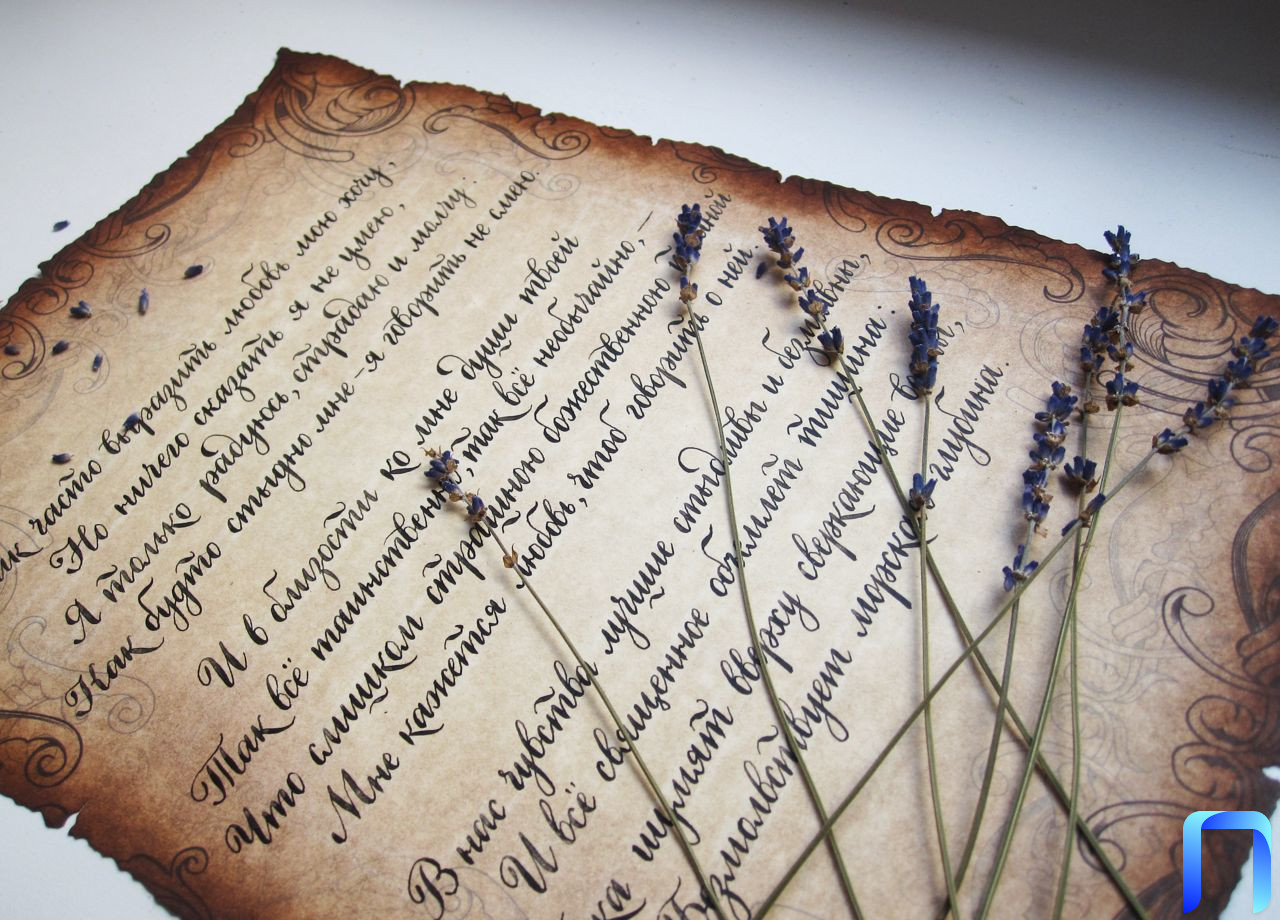 часто выразить любовь мою хочу,
Но ничего сказать я не умею,
Я только радуюсь, страдаю и молчу:
Как будто стыдно мне - я говорить не смею.
И в близости ко мне души твоей
Так всё таинственно, так всё необычайно, -
Что слишком страшною божественною
Мне кажется любовь, чтоб говорить о ней.
В нас чувства лучшие стыдливы и
И всё священное объемлет тишина:
шумят вверху сверкающие
Безмолвствует морская глубина.